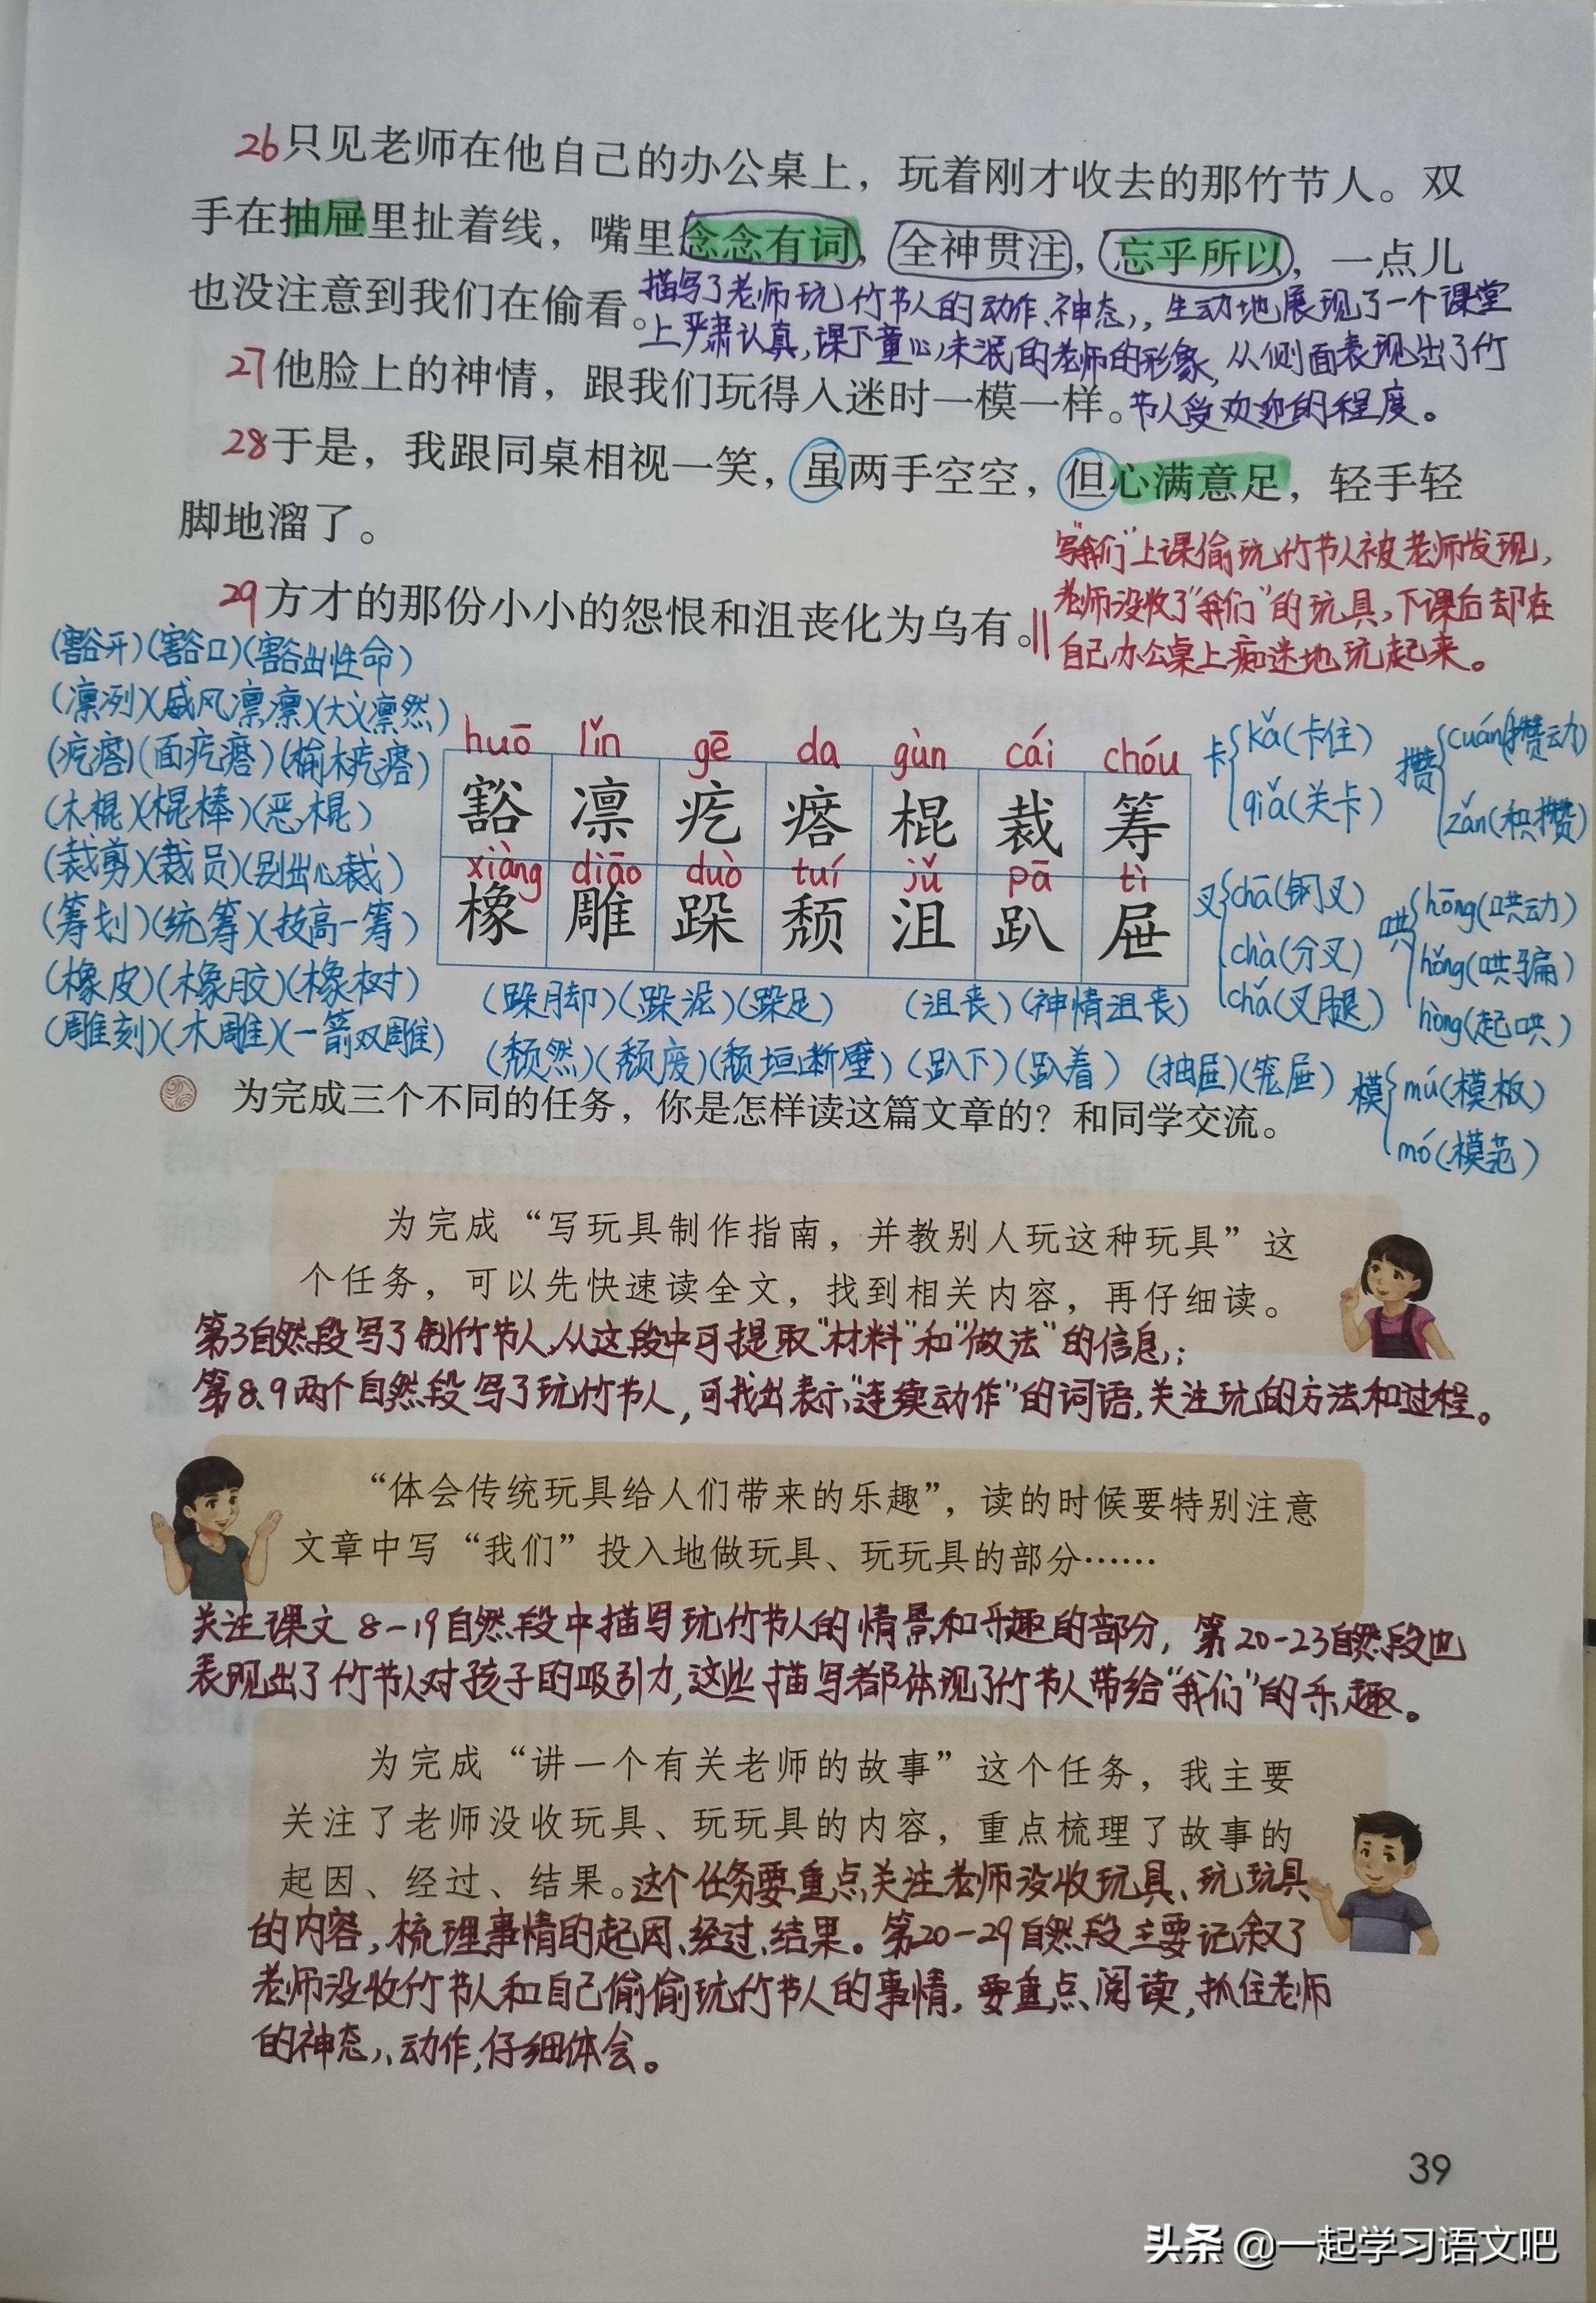 26只见老师在他自己的办公桌上，玩着刚才收去的那竹节人。双
手在抽屉里扯着线，嘴里念念有词，全神贯注，忘乎所以，一点儿
也没注意到我们在偷看。
描写了老师玩竹节人的动作、神态，生动地展现了一个课堂
上严肃认真，课下童心未泯的老师的形象，从侧面表现出了竹
节人受欢迎的程度。
27他脸上的神情，跟我们玩得入迷时一模一样。
28于是，我跟同桌相视一笑，虽两手空空，但心满意足，轻手轻
脚地溜了。
29方才的那份小小的怨恨和沮丧化为乌有。
写“我们”上课偷玩竹节人被老师发现，
老师没收了“我们”的玩具，下课后却在
自己办公桌上痴迷地玩起来。
(豁开)(豁口)(豁出性命)
(凛冽)(威风凛凛)(大义凛然)
(疙瘩)(面疙瘩)(榆木疙瘩)
(木棍)(棍棒)(恶棍)
(裁剪)(裁员)(别出心裁)
(筹划)(统筹)(技高一筹)
(橡皮)(橡胶)(橡树)
(雕刻)(木雕)(一箭双雕)
huō lǐn gē da gùn cái chóu
豁 凛 疙 瘩 棍 裁 筹
xiàng diāo duò tuí jǔ pā tì
橡 雕 跺 颓 沮 趴 屉
(跺脚)(跺泥)(跺足) (沮丧)(神情沮丧)
(颓然)(颓废)(颓垣断壁)(趴下)(趴着) (抽屉)(笼屉)
卡 kǎ(卡住)
qiǎ(关卡)
攒 cuán(攒动)
zǎn(积攒)
叉 chā(钢叉)
chà(分叉)
chǎ(叉腿)
哄 hōng(哄动)
hǒng(哄骗)
hòng(起哄)
模 mú(模板)
mó(模范)
为完成三个不同的任务，你是怎样读这篇文章的？和同学交流。
为完成“写玩具制作指南，并教别人玩这种玩具”这
个任务，可以先快速读全文，找到相关内容，再仔细读。
第3自然段写了制竹节人，从这段中可提取“材料”和“做法”的信息；
第8、9两个自然段写了玩竹节人，可找出表示“连续动作”的词语，关注玩的方法和过程。
“体会传统玩具给人们带来的乐趣”，读的时候要特别注意
文章中写“我们”投入地做玩具、玩玩具的部分……
关注课文8-19自然段中描写玩竹节人的情景和乐趣的部分，第20-23自然段也
表现出了竹节人对孩子的吸引力，这些描写都体现了竹节人带给“我们”的乐趣。
为完成“讲一个有关老师的故事”这个任务，我主要
关注了老师没收玩具、玩玩具的内容，重点梳理了故事的
起因、经过、结果。这个任务要重点关注老师没收玩具、玩玩具
的内容，梳理事情的起因、经过、结果。第20-29自然段主要记叙了
老师没收竹节人和自己偷偷玩竹节人的事情，要重点阅读，抓住老师
的神态、动作，仔细体会。
39
头条 @一起学习语文吧